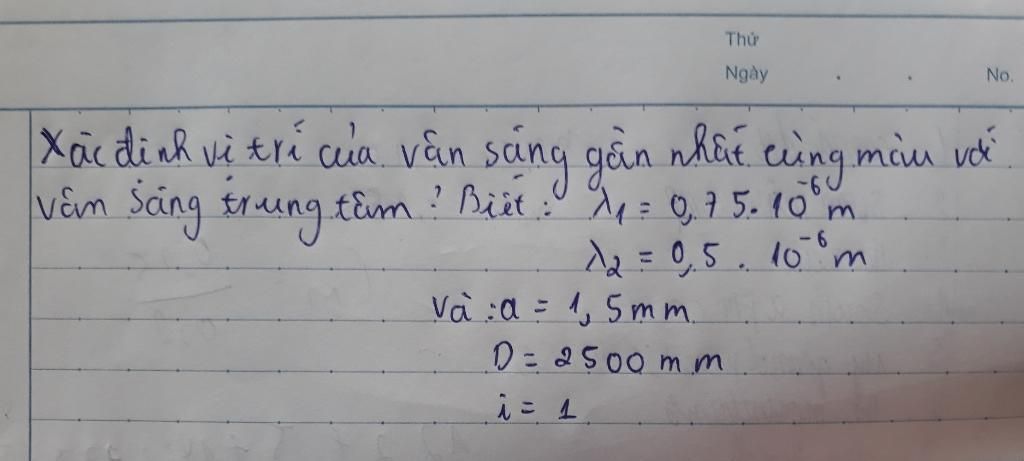 Thứ
Ngày . . No.
Xác định vị trí của vân sáng gần nhất cùng màu với
vân sáng trung tâm? Biết: λ1 = 0,75.10⁻⁶ m
λ2 = 0,5 . 10⁻⁶ m
Và : a = 1,5 mm
D = 2500 mm
i = 1